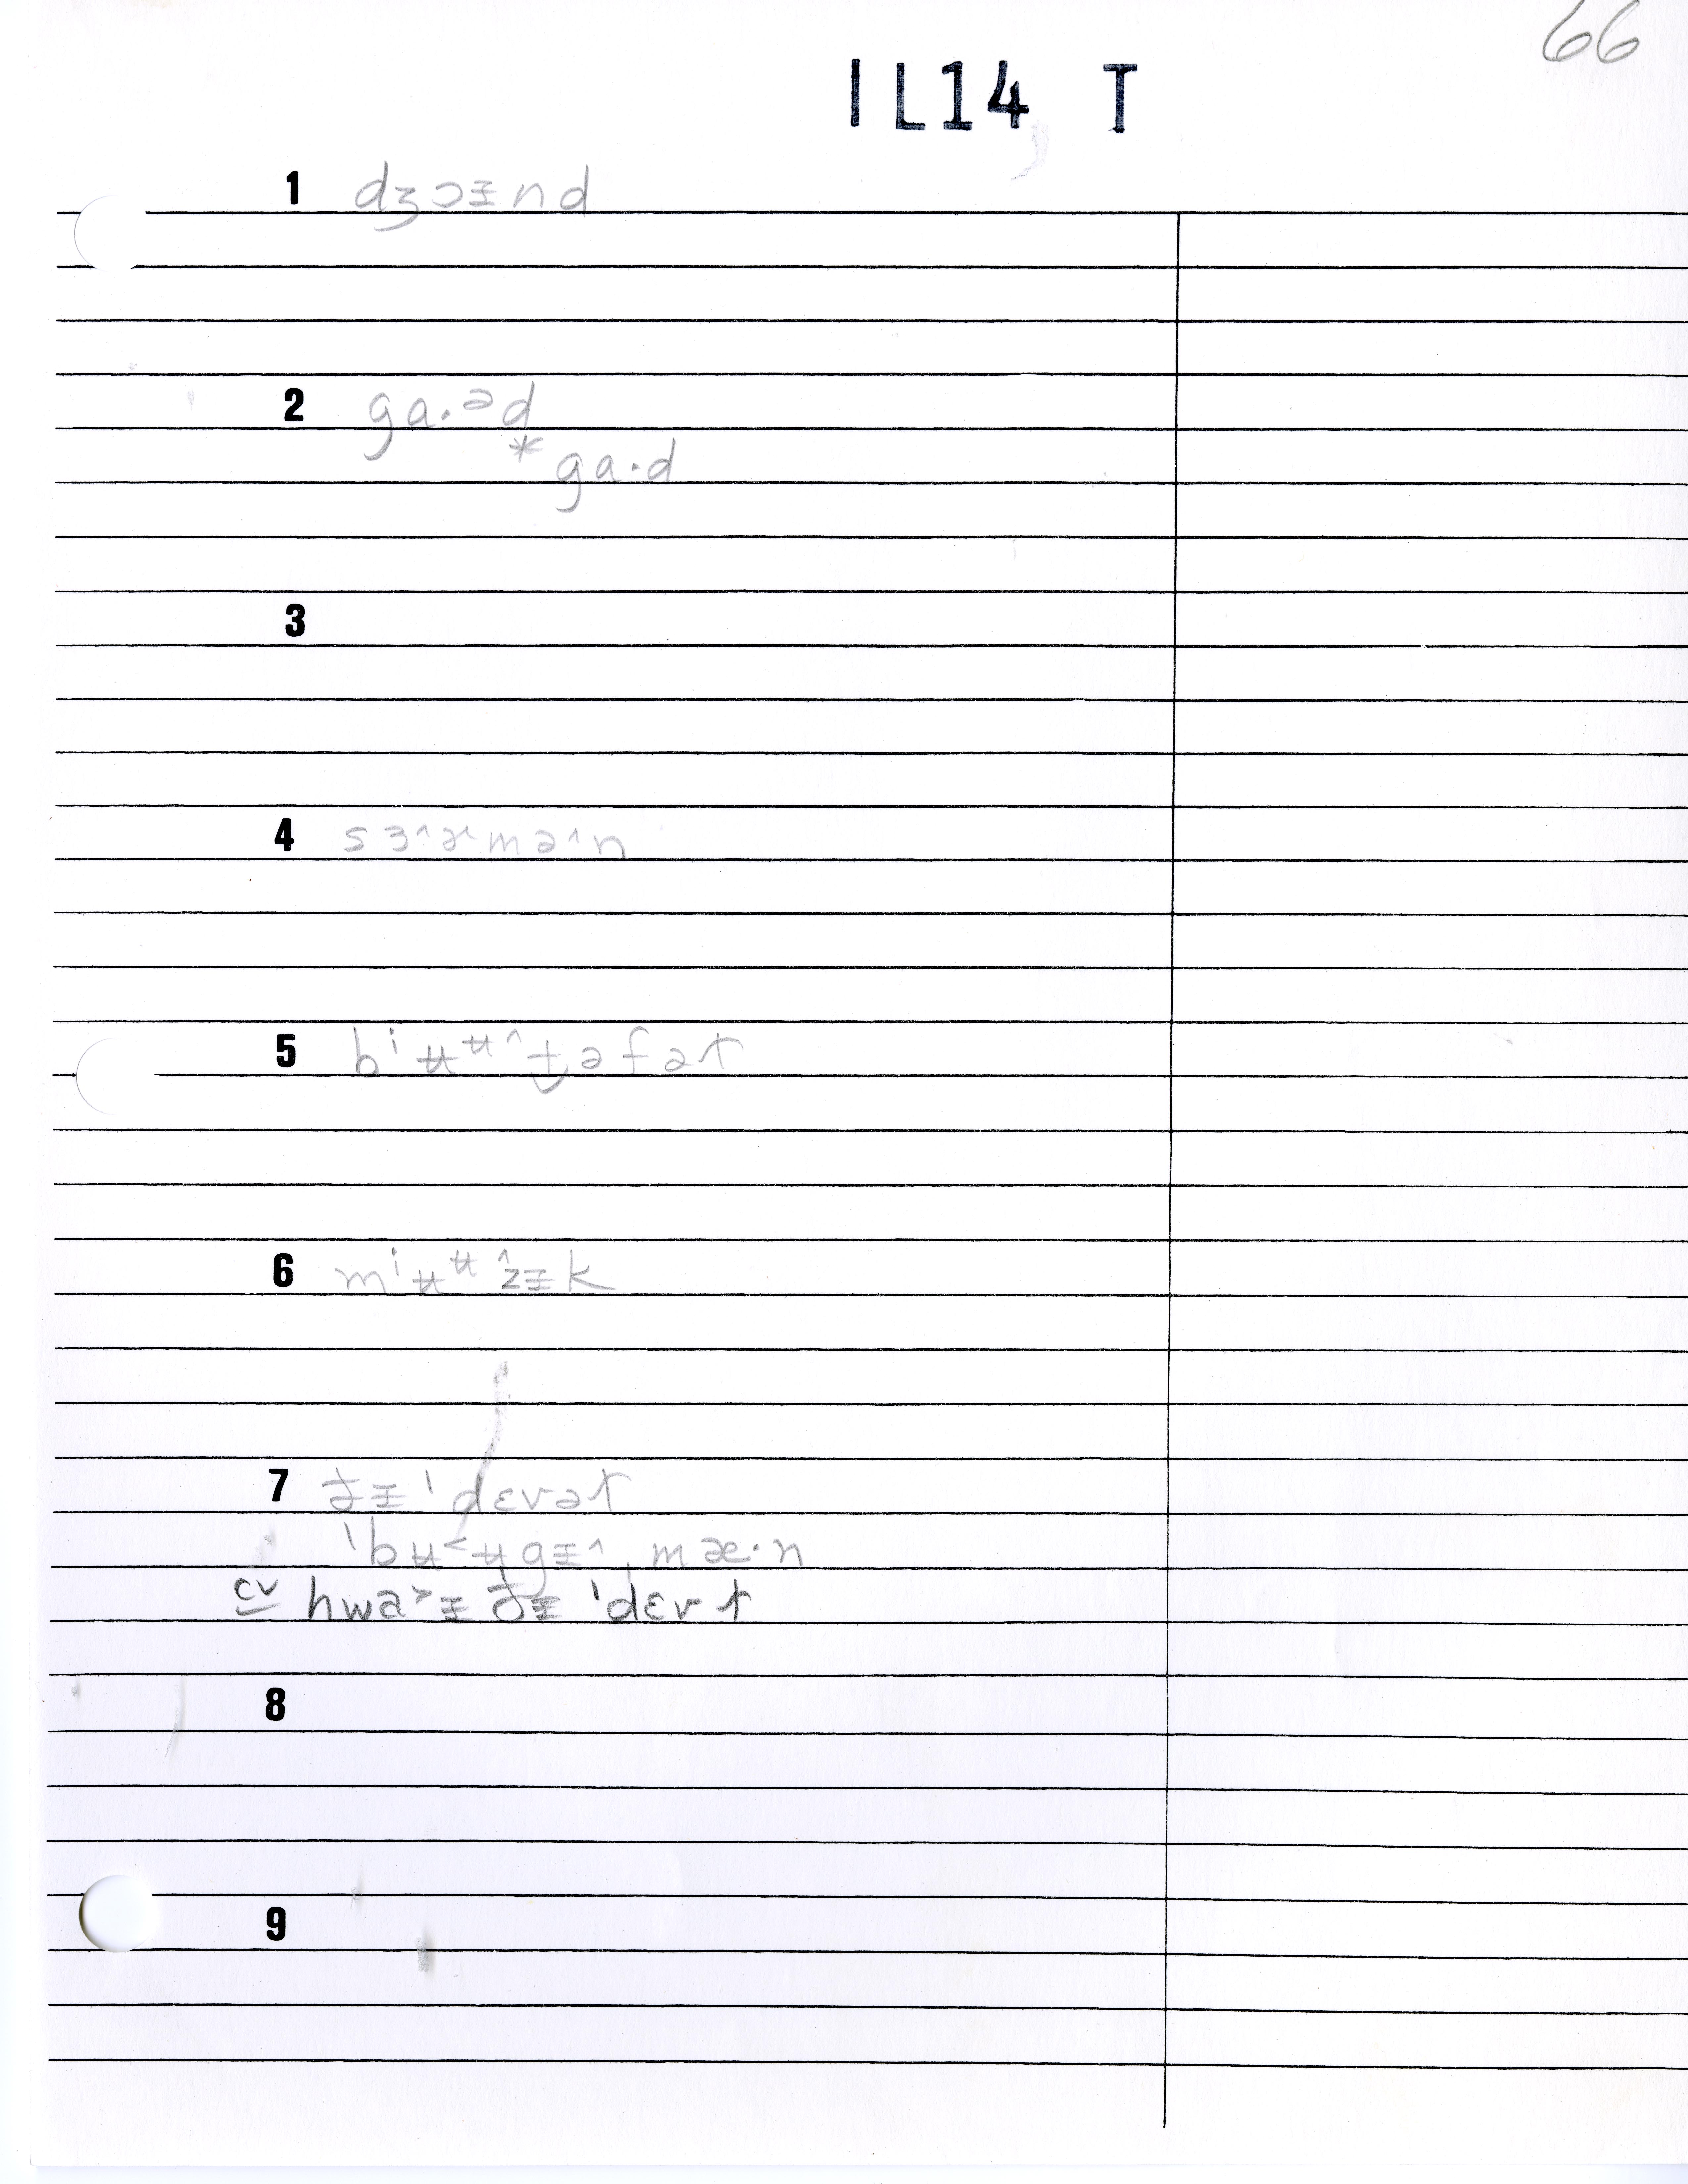 66
IL14 T
1 dʒɔɪ̵nd
2 ga·ᵊd
* ga·d
3
4 sɜ˄ɚmə˄n
5 bⁱʉᵾ˄t̬əfəɫ
6 mⁱʉᵾ˄zɪ̵k
7 ðɪ̵ ˈdɛvəɫ
ˈbʉ˂ʉgɪ̵˄ˌmæ·n
cv hwa˃ɪ̵ ðɪ̵ ˈdɛvɫ
8
9